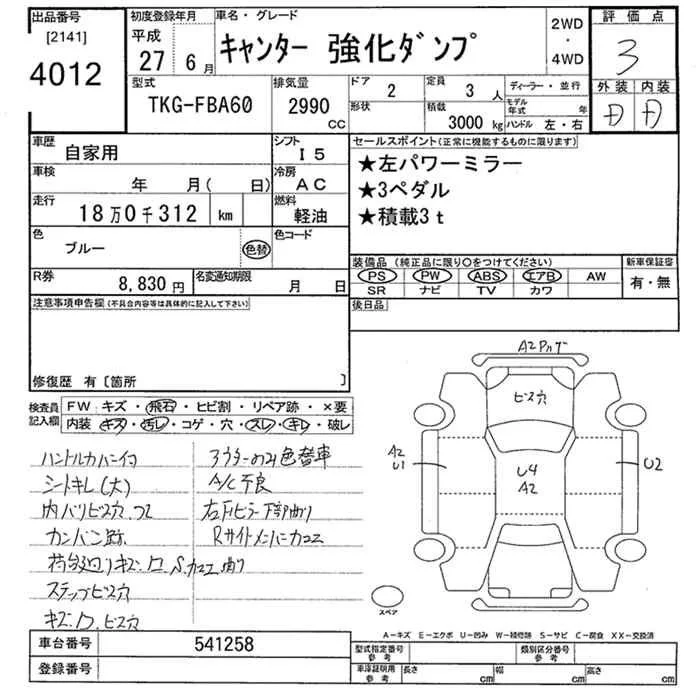 出品番号 初度登録年月 車名・グレード 2WD 評価点
[2141] 平成 キャンター 強化ダンプ ・
4012 27年 6月 4WD 3
型式 排気量 ドア 2 定員 3人 ディーラー・並行 外装 内装
TKG-FBA60 2990 CC 形状 積載 3000 kg モデル年式 年
ハンドル 左・右
車歴 自家用 シフト I 5 セールスポイント(正常に機能するものに限ります)
車検 年 月( 日) 冷房 AC ★左パワーミラー
走行 18万0千312 km 燃料 軽油 ★3ペダル
★積載3t
色 ブルー 色替 色コード
装備品 (純正品に限り○をつけてください) 新車保証書
R券 8,830円 名変通知期限 月 日 PS PW ABS エアB AW 有・無
SR ナビ TV カワ
注意事項申告欄(不具合内容等は具体的に記入して下さい) 後日品
修復歴 有 [箇所 ]
検査員 FW キズ・飛石・ヒビ割・リペア跡・×要
記入欄 内装 キズ・汚レ・コゲ・穴・スレ・キレ・破レ
ハンドルカバー付 アウターのみ色替車
シートキレ(大) A/C不良
内バリビス穴
カンバン跡
ステップビス穴
キズ.ビス穴
ビス穴
A2
U1
U4
A2
U2
スペア
A-キズ E-エクボ U-凹み W-補修跡 S-サビ C-腐食 XX-交換済
車台番号 541258 型式指定番号 参考 類別区分番号 参考
登録番号 車庫証明用 参考 長さ cm 幅 cm 高さ cm